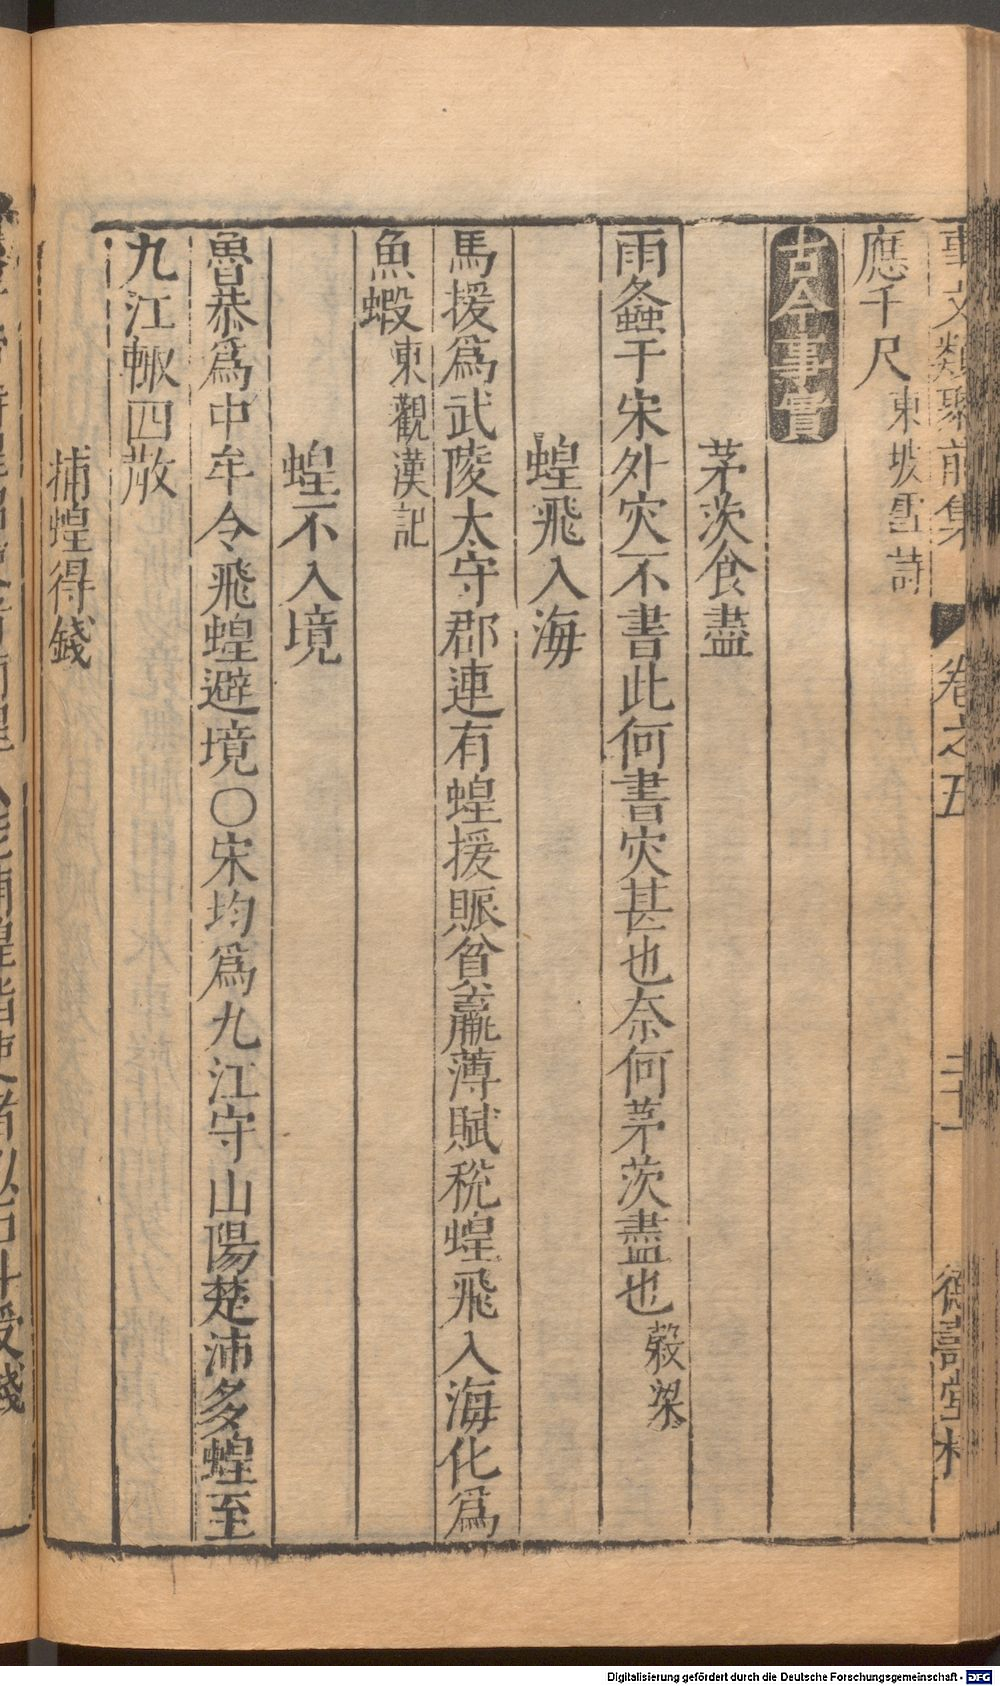 事文類聚前集 卷之五 二十一 德壽堂梓
應千尺東坡雪詩
古今事實
茅茨食盡
雨螽于宋外灾不書此何書灾甚也奈何茅茨盡也穀梁
蝗飛入海
馬援爲武陵太守郡連有蝗援賑貧羸薄賦稅蝗飛入海化爲
魚蝦東觀漢記
蝗不入境
魯恭爲中牟令飛蝗避境〇宋均爲九江守山陽楚沛多蝗至
九江輙四散
捕蝗得錢
Digitalisierung gefördert durch die Deutsche Forschungsgemeinschaft - DFG